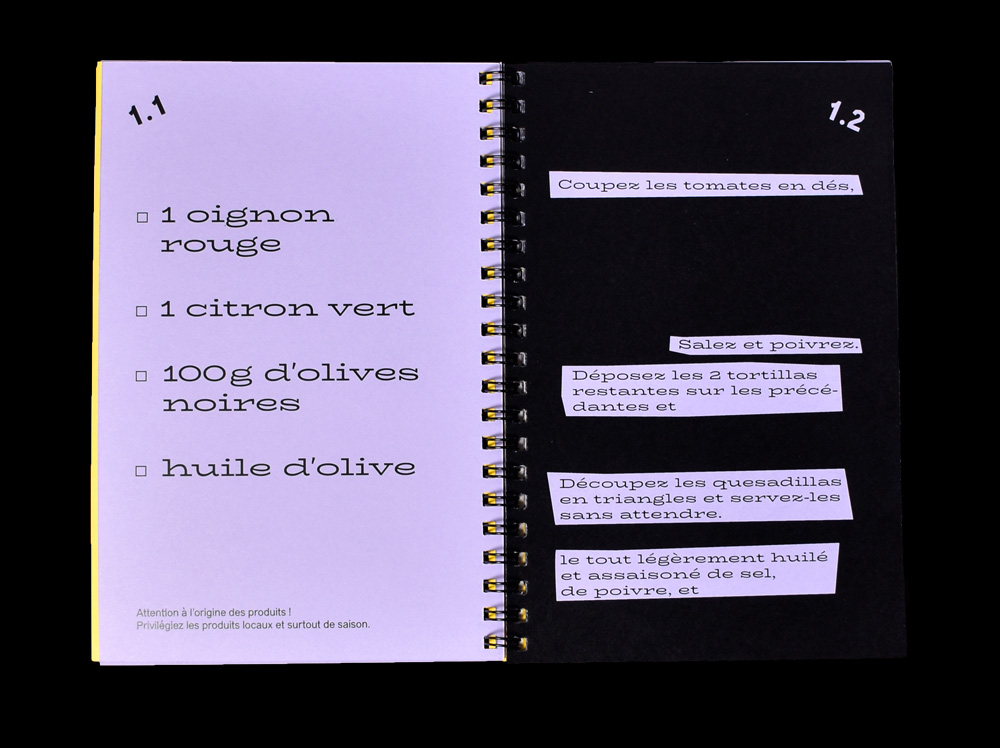 1.1
□ 1 oignon
rouge
□ 1 citron vert
□ 100g d'olives
noires
□ huile d'olive
Attention à l'origine des produits !
Privilégiez les produits locaux et surtout de saison.
1.2
Coupez les tomates en dés,
Salez et poivrez.
Déposez les 2 tortillas
restantes sur les précé-
dantes et
Découpez les quesadillas
en triangles et servez-les
sans attendre.
le tout légèrement huilé
et assaisoné de sel,
de poivre, et